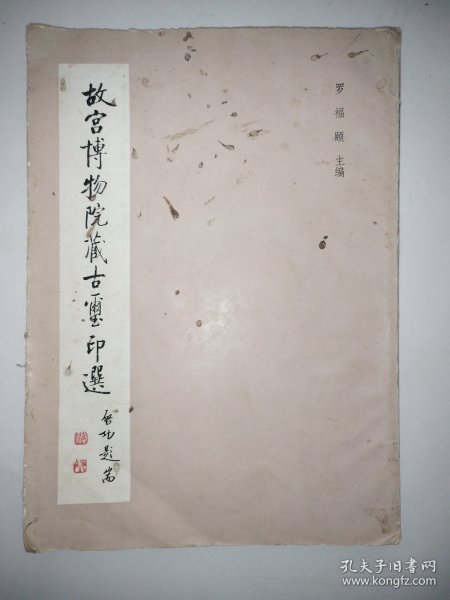 罗福颐 主编
故宫博物院藏古璽印選
启功题耑
孔夫子旧书网
www.kongfz.com